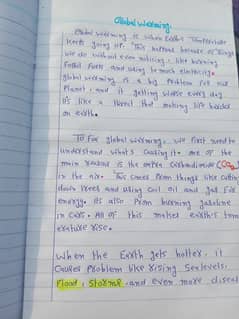 Global Warming.
Global warming is when Earth's Temperature
keeps going up. This happens because of things
we do without even noticing, like burning
Fossil Fuels and using to much electricity.
global warming is a big problem for our
Planet, and it getting worse every day.
It's like a threat that making life harder
on earth.
To Fix global warming, we first need to
understand what's causing it. one of the
main reasons is the extra carbondioxide (CO2)
in the air. This comes from things like cutting
down trees and using coil oil and gas for
energy. Its also from burning gasoline
in cars. All of this makes earth's temp
erature rise.
When the Earth gets hotter, it
Causes Problem like rising Sea levels,
Flood, Storms, and even more diseas